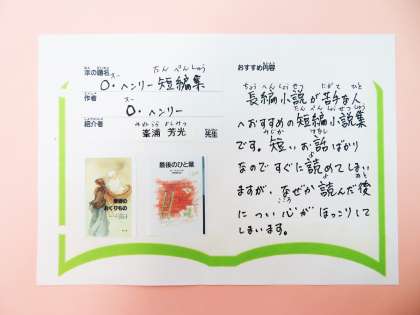 本の題名
オー たんぺんしゅう
O・ヘンリー 短編集
作者
オー
O・ヘンリー
紹介者
峯浦 芳光
おすすめ内容
ちょうへんしょうせつ にがて ひと
長編小説が苦手な人
たんぺんしょうせつしゅう
へおすすめの短編小説集
みじか はなし
です。短いお話ばかり
よ
なのですぐに読めてしまい
よ あと
ますが、なぜか読んだ後
こころ
につい心がほっこりして
しまいます。
最後のひと葉